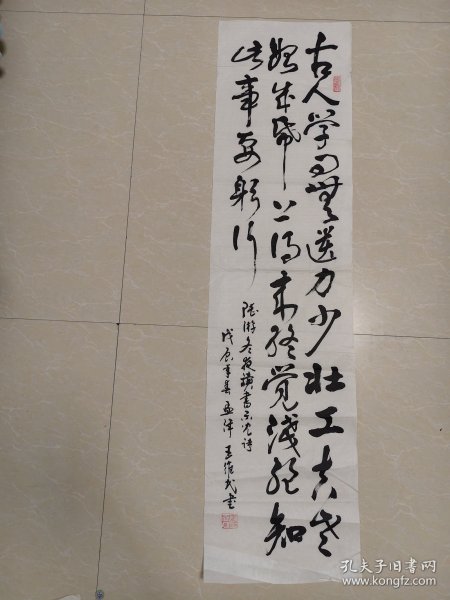 古人学问無遗力少壮工夫老
始成纸上得来终觉浅绝知
此事要躬行
陆游冬夜读书示儿诗
戊辰年
书
孔夫子旧书网
www.kongfz.com